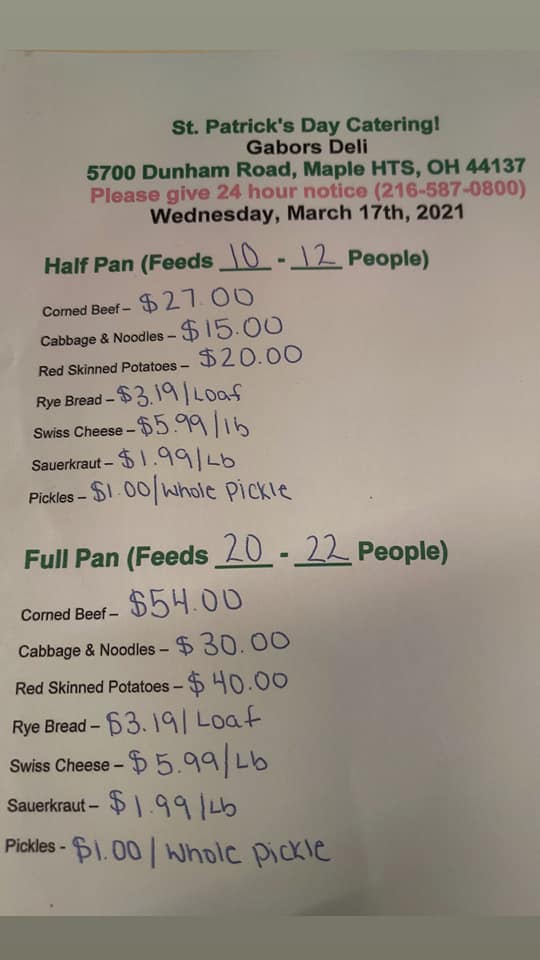 St. Patrick's Day Catering!
Gabors Deli
5700 Dunham Road, Maple HTS, OH 44137
Please give 24 hour notice (216-587-0800)
Wednesday, March 17th, 2021
Half Pan (Feeds 10 - 12 People)
Corned Beef – $27.00
Cabbage & Noodles – $15.00
Red Skinned Potatoes – $20.00
Rye Bread – $3.19/Loaf
Swiss Cheese – $5.99/lb
Sauerkraut – $1.99/Lb
Pickles – $1.00/whole pickle
Full Pan (Feeds 20 - 22 People)
Corned Beef – $54.00
Cabbage & Noodles – $30.00
Red Skinned Potatoes – $40.00
Rye Bread – $3.19/Loaf
Swiss Cheese – $5.99/Lb
Sauerkraut – $1.99/Lb
Pickles - $1.00/whole pickle